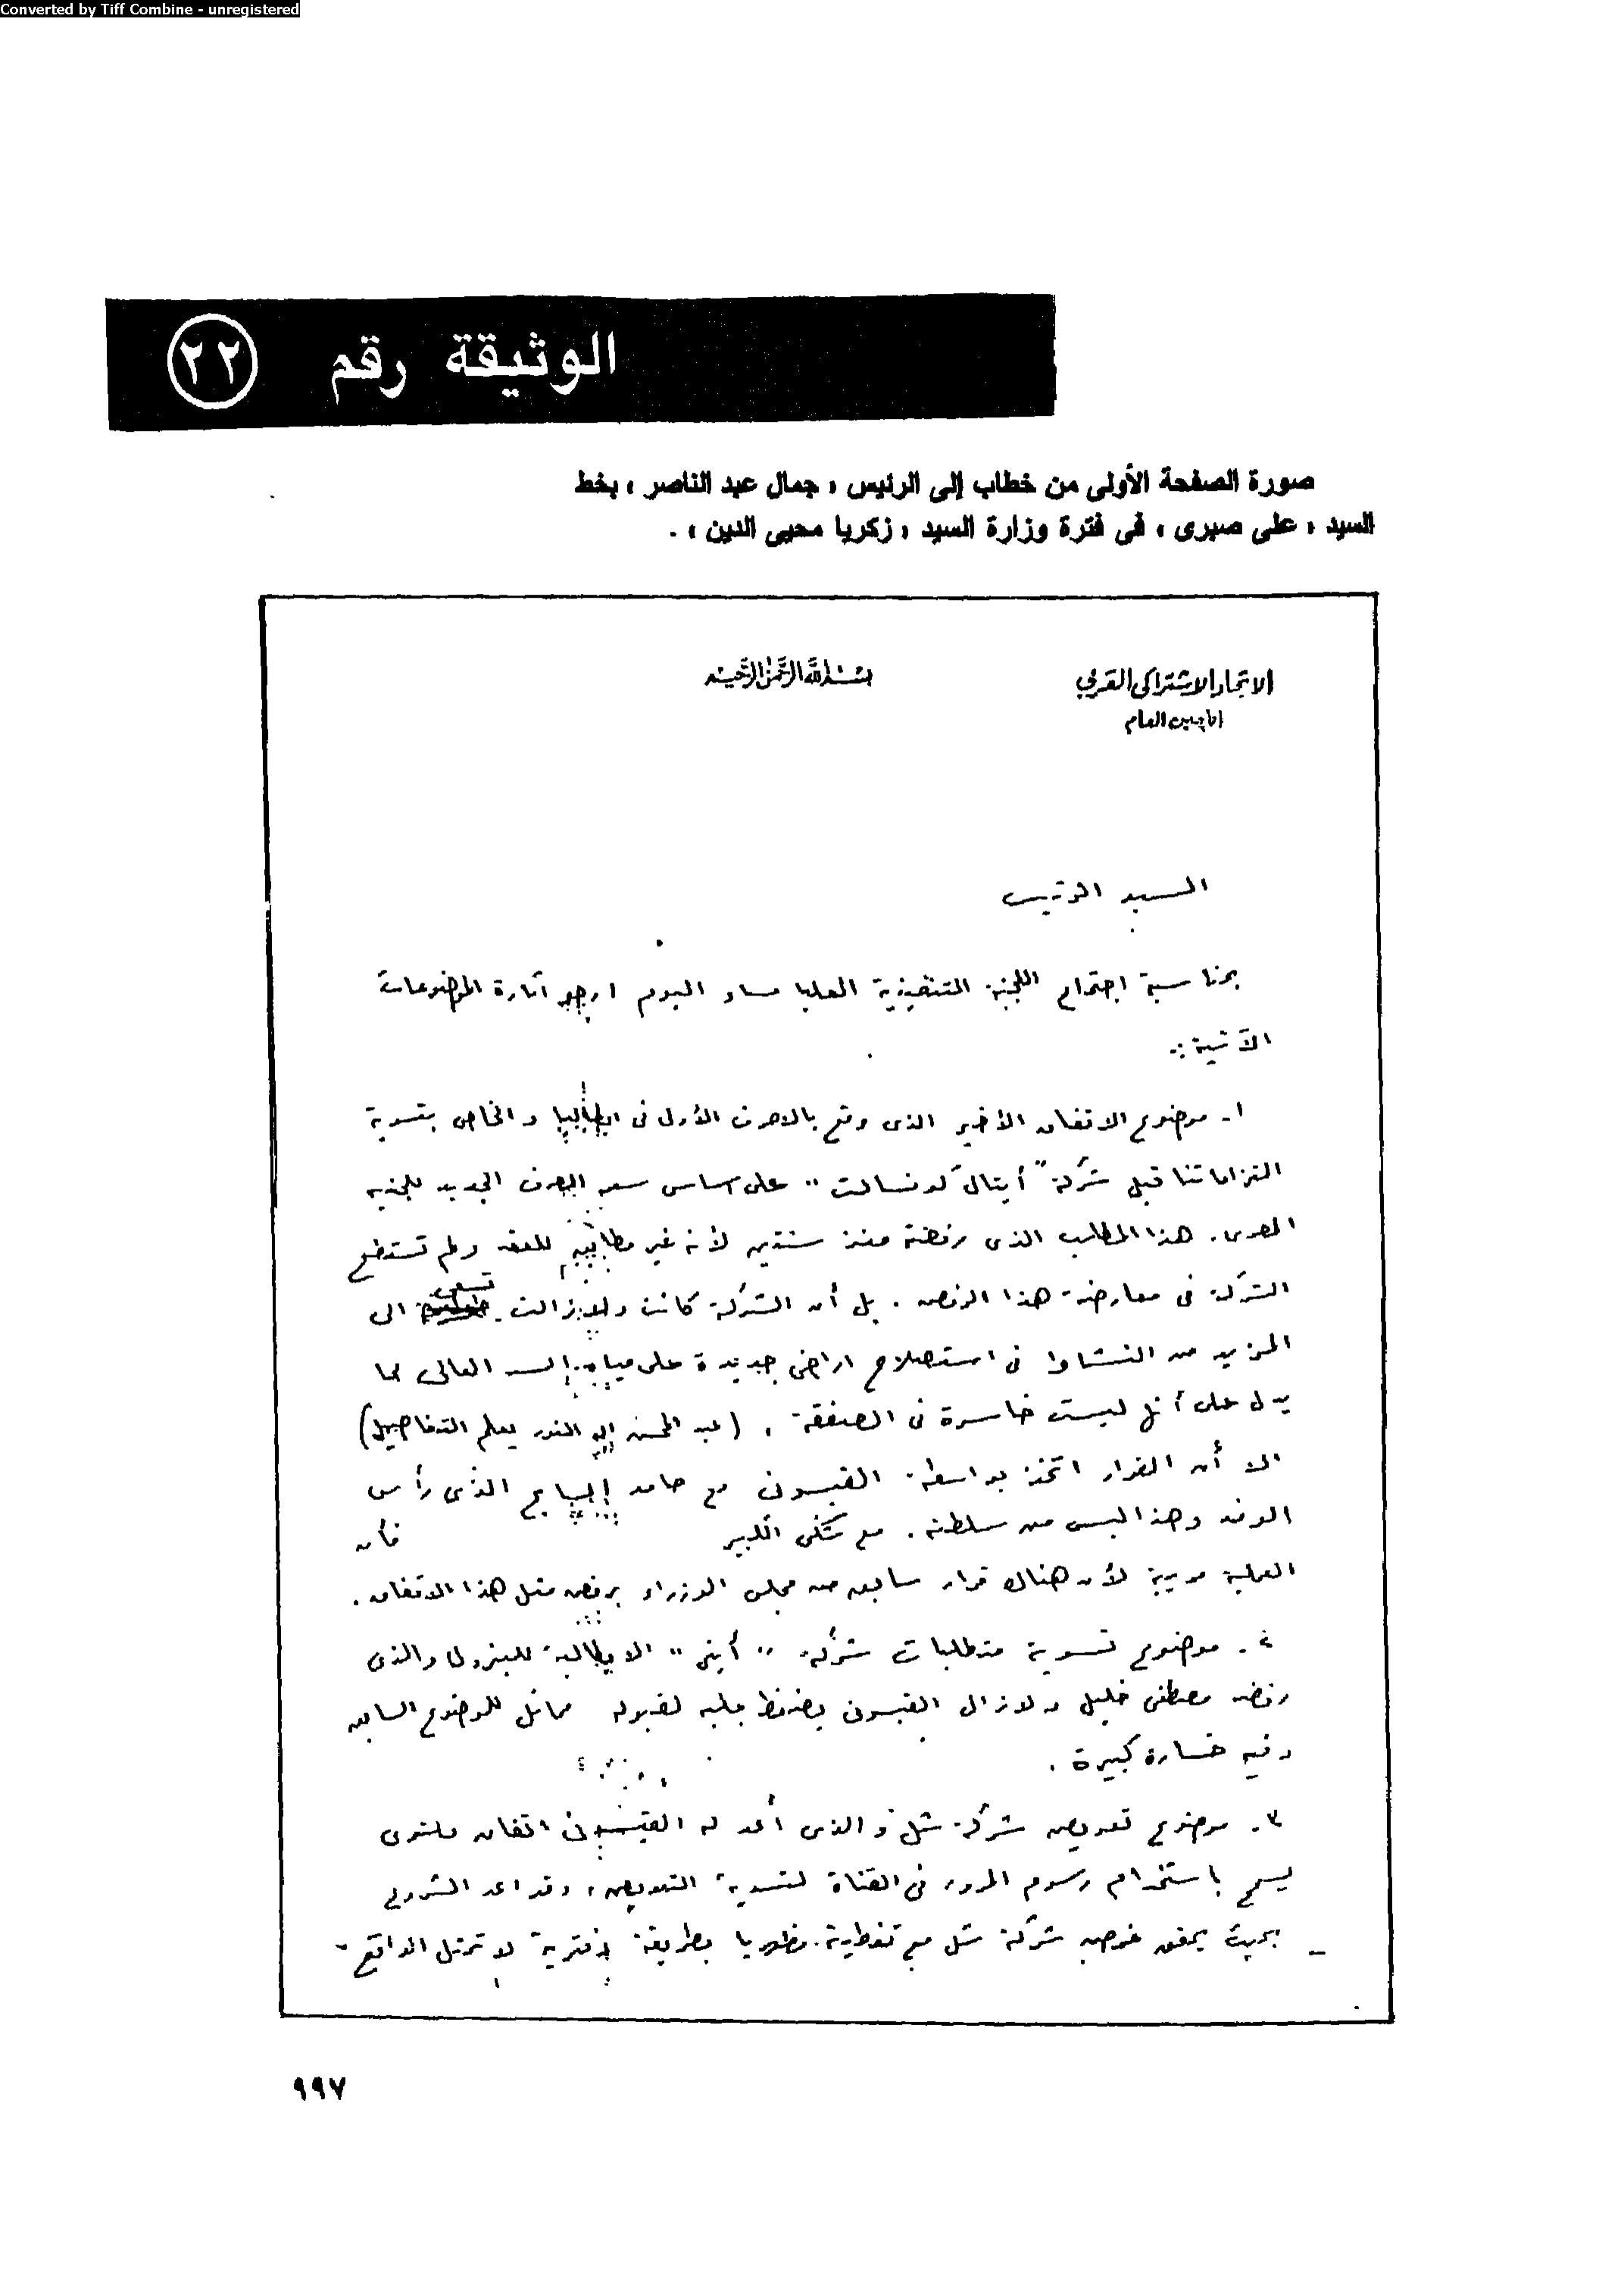 Converted by Tiff Combine - unregistered
الوثيقة رقم ٢٢
صورة الصفحة الأولى من خطاب إلى الرئيس « جمال عبد الناصر » بخط
السيد « على صبرى » فى فترة وزارة السيد « زكريا محيى الدين » .
الاتحاد الاشتراكى العربى
بسم الله الرحمن الرحيم
الأمين العام
السيد الرئيس
بمناسبة اجتماع اللجنة التنفيذية العليا مساء اليوم ارجو اثارة الموضوعات
الآتية :-
١- موضوع الاتفاق الأخير الذى وقع بالاحرف الأولى فى ايطاليا والخاص بتسوية
التزاماتنا قبل شركة " أيتال كونسالت " على اساس سعر الصرف الجديد للجنيه
المصرى . هذا المطلب الذى رفضته منذ سنتين لأنه غير مطابق للعقد ولم تستطع
الشركة فى معارضة هذا الرفض . بل أن الشركة كانت ولا زالت تسعى الى
المزيد من النشاط فى استصلاح اراضى جديدة على مياه السد العالى مما
يدل على أنها ليست خاسرة فى الصفقة . (عبد المحسن ابو النور يعلم التفاصيل)
الا أن القرار اتخذ بواسطة القيسونى مع حامد السايح الذى رأس
الوفد وهذا ليس من سلطته . مع شكى الكبير فأن
العملية مريبة لأن هناك قرار سابق من مجلس الوزراء برفض مثل هذا الاتفاق .
٢- موضوع تسوية متطلبات شركة " أينى " الايطالية للبترول والذى
رفضه مصطفى خليل ولازال القيسونى يضغط عليه لقبوله مماثل للموضوع السابق
وفيه خسارة كبيرة .
٣- موضوع تعويض شركة شل والذى أعد له القيسونى اتفاق ملتوى
يسمح باستخدام رسوم المرور فى القناة لتسوية التعويض ، وقد اعد المشروع
بحيث يحقق غرض شركة شل مع تغطية مظهريا بطريقة دفترية لا تمثل الواقع -
٩٩٧